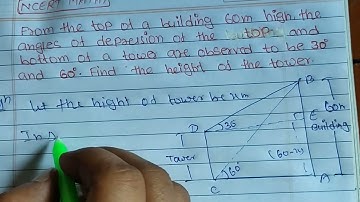 NCERT Maths
From the top of a building 60m high the
angles of depression of the top and
bottom of a tower are observed to be 30°
and 60°. Find the height of the tower.
let the hight of tower be x m
In
B
D
30
E
60m
Building
Tower
(60-x)
60°
C
A